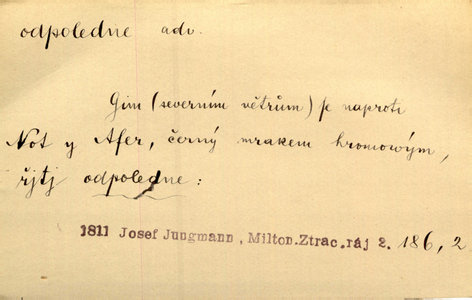 odpoledne adv.
Gim (severním větrům) je naproti
Not y Afer, černý mrakem hromowým,
řjtj odpoledne :
1811 Josef Jungmann, Milton.Ztrac.ráj 2. 186, 2